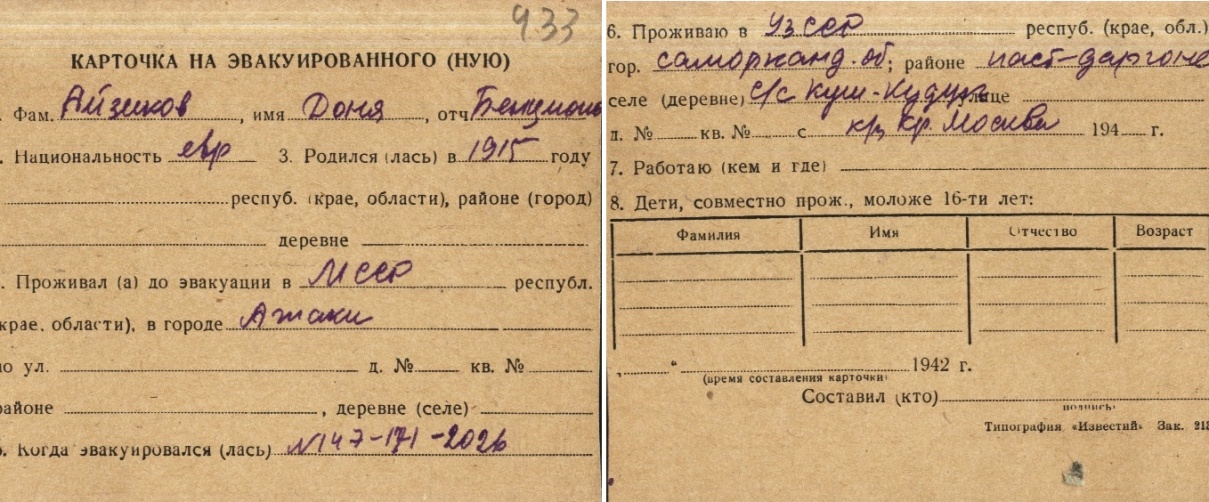 933
КАРТОЧКА НА ЭВАКУИРОВАННОГО (НУЮ)
. Фам. Айзиков, имя Доня, отч.
. Национальность евр 3. Родился (лась) в 1915 году
респуб. (крае, области), районе (город)
деревне
. Проживал (а) до эвакуации в МССР республ.
крае, области), в городе Атаки
по ул. д. № кв. №
районе , деревне (селе)
. Когда эвакуировался (лась) N147-171-2026
6. Проживаю в УзССР респуб. (крае, обл.)
гор. саморканд. об; районе паст-даргоне
селе (деревне) с/с Куш-Кудук улице
д. № кв. № с Кр. Москва 194 г.
7. Работаю (кем и где)
8. Дети, совместно прож., моложе 16-ти лет:
Фамилия Имя Отчество Возраст
" 1942 г.
(время составления карточки)
Составил (кто)
подпись
Типография «Известий» Зак. 213